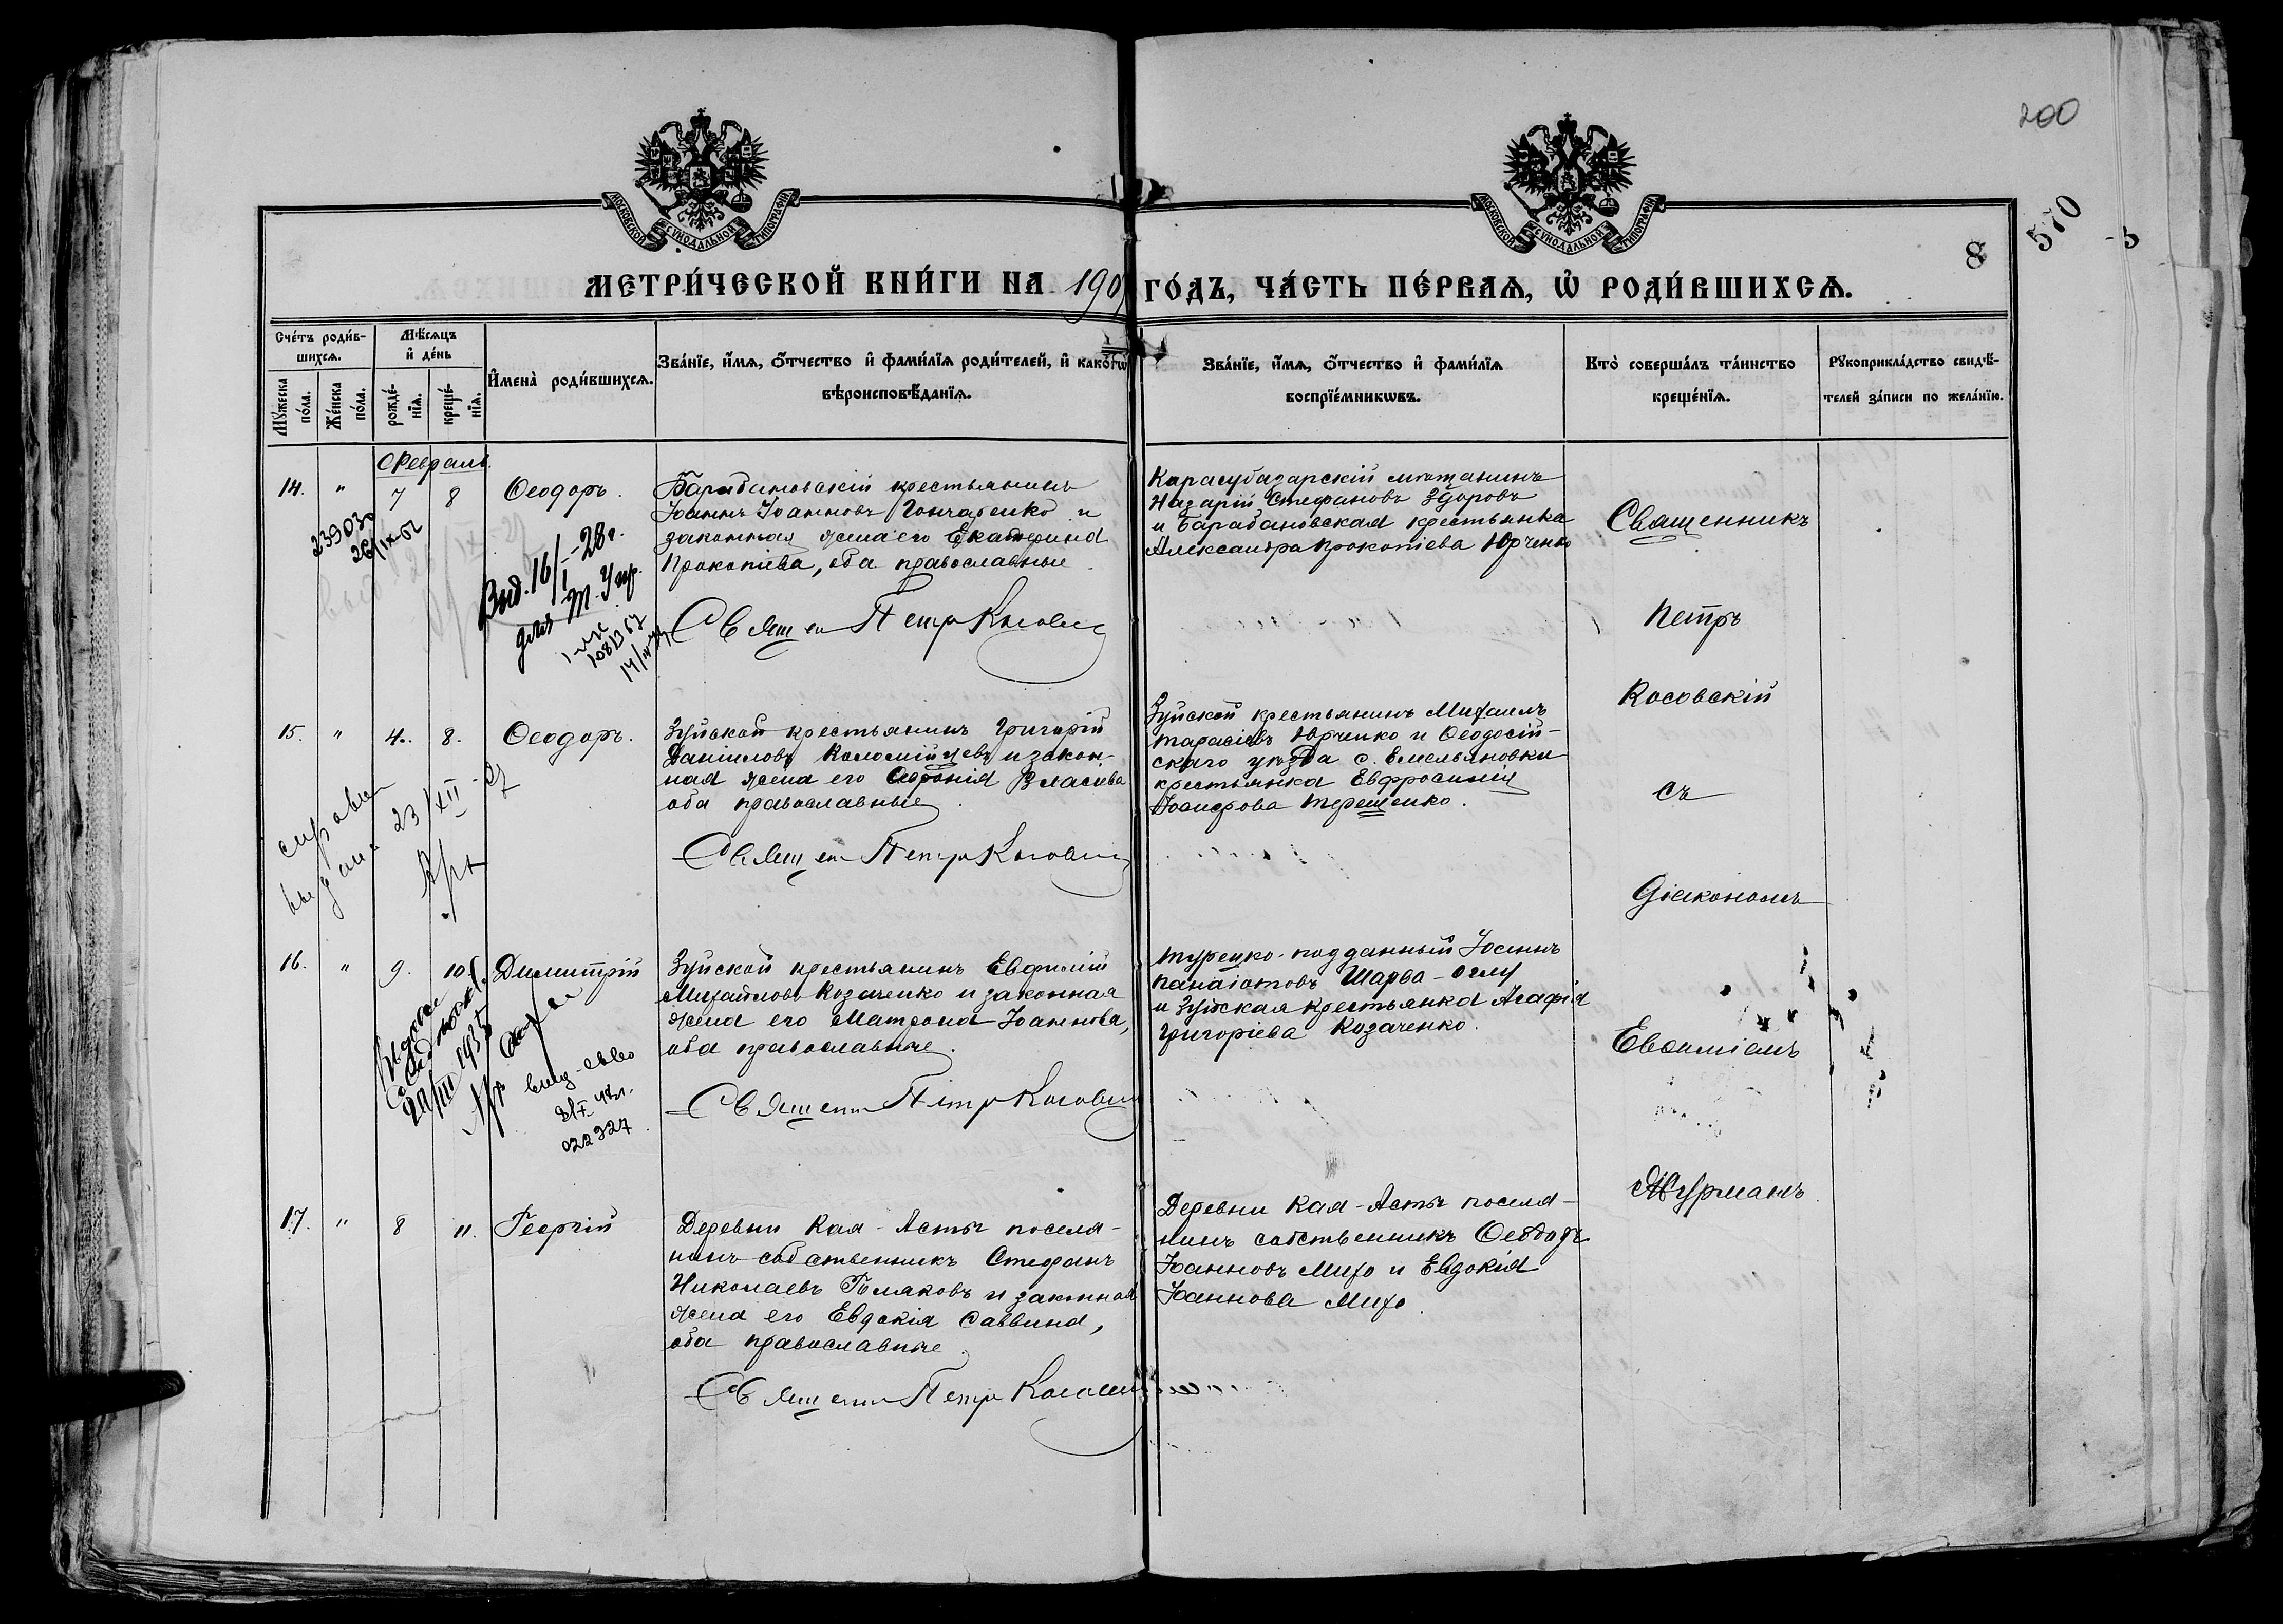 200
570
8
МОСКОВСКОЙ СѴНОДАЛЬНОЙ ТИПОГРАФІИ
МОСКОВСКОЙ СѴНОДАЛЬНОЙ ТИПОГРАФІИ
МЕТРИ́ЧЕСКОЙ КНИ́ГИ НА 190
ГО́ДЪ, ЧА́СТЬ ПЕ́РВАѦ, Ѡ҆ РОДИ́ВШИХСѦ.
Сче́тъ роди́в-
шихсѧ.
Мꙋ́жеска по́ла.
Же́нска по́ла.
Мѣ́сѧцъ
и҆ де́нь
рожде́-нїѧ.
креще́-нїѧ.
И҆мена̀ роди́вшихсѧ.
Зва́нїе, и҆́мѧ, ѻ҆́тчество и҆ фами́лїѧ роди́телей, и҆ како́гѡ
вѣроисповѣ́данїѧ.
Зва́нїе, и҆́мѧ, ѻ҆́тчество и҆ фами́лїѧ
воспрїе́мникѡвъ.
Кто̀ соверша́лъ та́инство
креще́нїѧ.
Рꙋкоприкла́дство свидѣ́-
телей за́писи по жела́нїю.
Февраль.
14. " 7 8 Ѳеодоръ.
Барабановскій крестьянинъ
Іоаннъ Іоанновъ Гончаренко и
законная жена его Екатерина
Прокопіева, оба православные
Священ Петръ Косовскій
Карасубазарскій мѣщанинъ
Назарій Стефановъ Здоровъ
и Барабановская крестьянка
Александра Прокопіева Юрченко
239030
26/IX-52
Выд. 16/I-28 г.
для
Священникъ
Петръ
Косовскій
съ
діакономъ
Евѳиміемъ
Журманъ
15. " 4. 8. Ѳеодоръ.
Зуйской крестьянинъ Григорій
Даніиловъ Коломійцевъ и закон-
ная жена его Софронія Власіева
оба православные
Священ Петръ Косовскій
Зуйской крестьянинъ Михаилъ
Тарасіевъ Юрченко и Ѳеодосій-
скаго уѣзда с. Емельяновки
крестьянка Евфросинія
Іосифова Терещенко.
справка
выдана 23/XII-27
16. " 9. 10. Димитрій
Зуйской крестьянинъ Евфимій
Михайловъ Козаченко и законная
жена его Матрона Іоаннова,
оба православные.
Священ Петръ Косовскій
Турецко-подданный Іосифъ
Панаіотовъ Шарва-Оглу
и Зуйская крестьянка Агафія
Григоріева Козаченко.
1935
022327
17. " 8 11. Георгій
Деревни Кая-Асты поселя-
нинъ собственникъ Стефанъ
Николаевъ Поляковъ и законная
жена его Евдокія Саввина,
оба православные
Священ Петръ Косовскій
Деревни Кая-Асты поселя-
нинъ собственникъ Ѳеодоръ
Іоанновъ Михо и Евдокія
Іоаннова Михо.